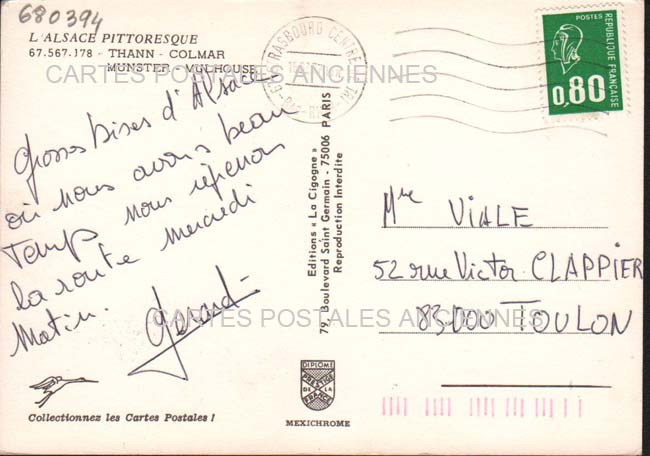 680394
L'ALSACE PITTORESQUE
67.567.178 - THANN - COLMAR
MUNSTER - MULHOUSE
CARTES POSTALES ANCIENNES
Grosses bises d'Alsace
où nous avons beau
temps nous reprenons
la route mercredi
matin.
Gérard
STRASBOURG CENTRE TRI
BAS-RHIN
POSTES
REPUBLIQUE FRANÇAISE
0,80
Editions « La Cigogne »
79, Boulevard Saint Germain - 75006 PARIS
Reproduction Interdite
Mre VIALE
52 rue Victor CLAPPIER
83000 TOULON
CARTES POSTALES ANCIENNES
DIPLOME
PRESTIGE
DE LA
FRANCE
MEXICHROME
Collectionnez les Cartes Postales !